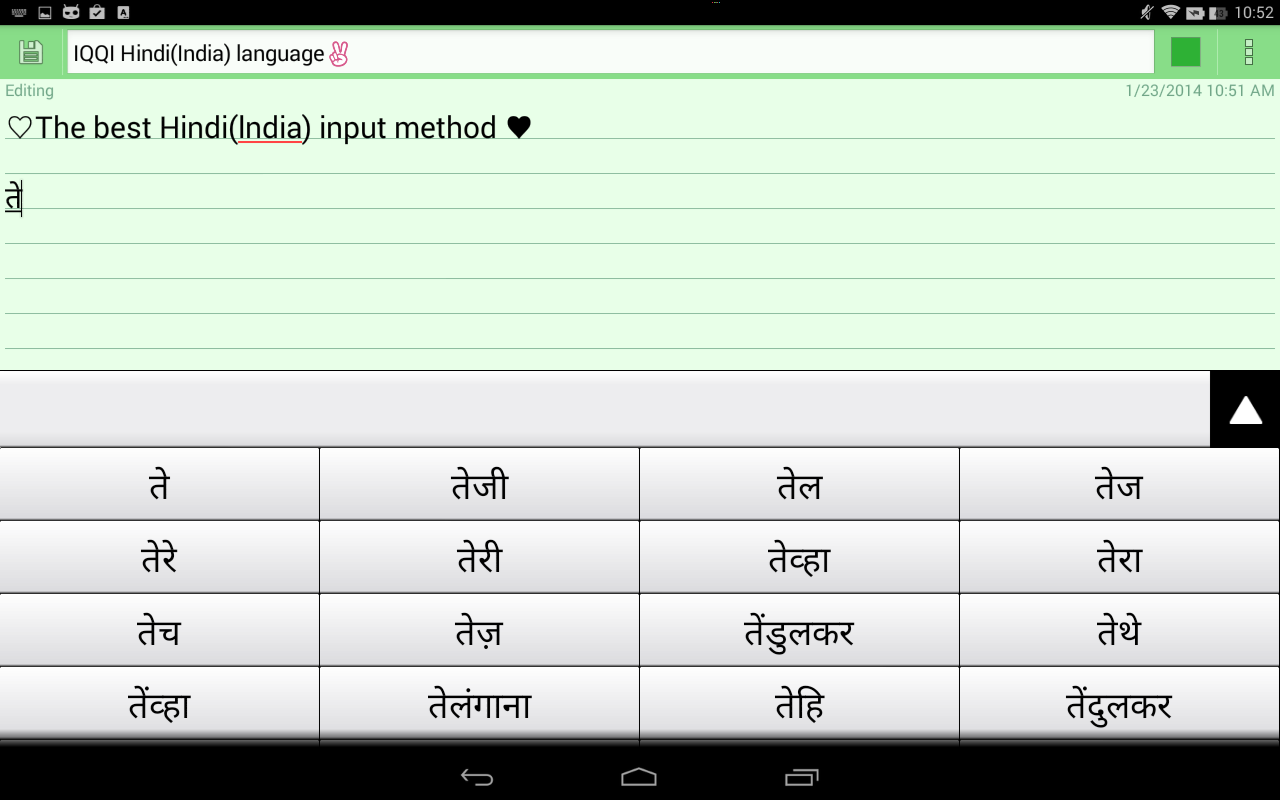 10:52
IQQI Hindi(India) language✌
Editing 1/23/2014 10:51 AM
♡The best Hindi(India) input method ♥
ते
ते तेजी तेल तेज
तेरे तेरी तेव्हा तेरा
तेच तेज़ तेंडुलकर तेथे
तेंव्हा तेलंगाना तेहि तेंदुलकर